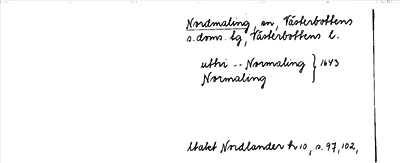 Nordmaling, sn, Västerbottens
s. doms. lg, Västerbottens l.
uthi -- Normaling } 1643
Normaling
Utalet Nordlander h 10, s. 97, 102,